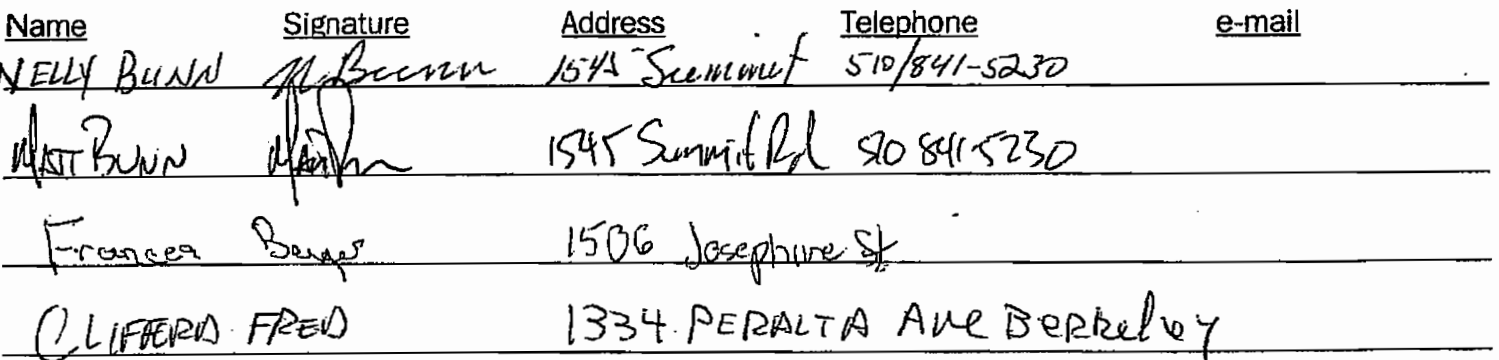 Name Signature Address Telephone e-mail
NELLY BUNN N. Bunn 1545 Summit 510/841-5230
MATT BUNN 1545 Summit Rd 510 841-5230
Frances 1506 Josephine St
CLIFFERD FRED 1334 PERALTA Ave BERKeley